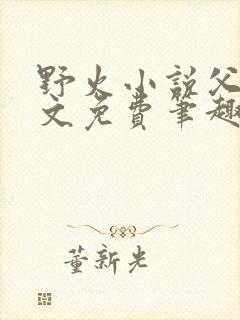 野火小说父
文免费笔趣
董新光